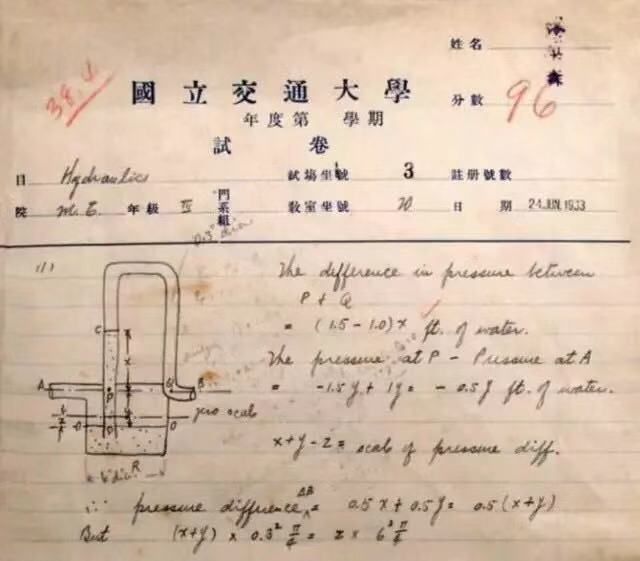 姓名
38.4
國立交通大學
分數 96
年度第 學期
試卷
目 Hydraulics 試場坐號 3 註册號數
院 M.E. 年級 III 門系組 教室坐號 20 日期 24 JUN 1933
0.3" dia
(1) The difference in pressure between
P & Q
= (1.5 - 1.0)x ft. of water.
The pressure at P - Pressure at A
= -1.5y + 1y = -0.5y ft. of water.
C
x
A P Q B
y
zero scale
O O
R
6" dia.
x+y-z = scale of pressure diff.
∴ pressure difference AB = 0.5x + 0.5y = 0.5(x+y)
But (x+y) × 0.3² π/4 = z × 6² π/4